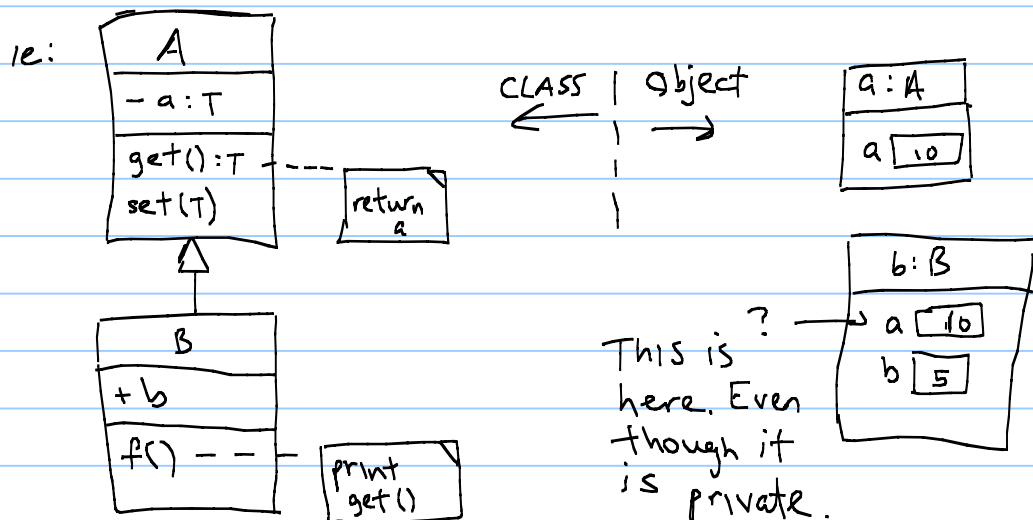 ie:
A
- a : T
get() : T
set(T)
return
a
B
+ b
f()
print
get()
CLASS | Object
a : A
a 10
b : B
a 10
b 5
?
This is
here. Even
though it
is private.